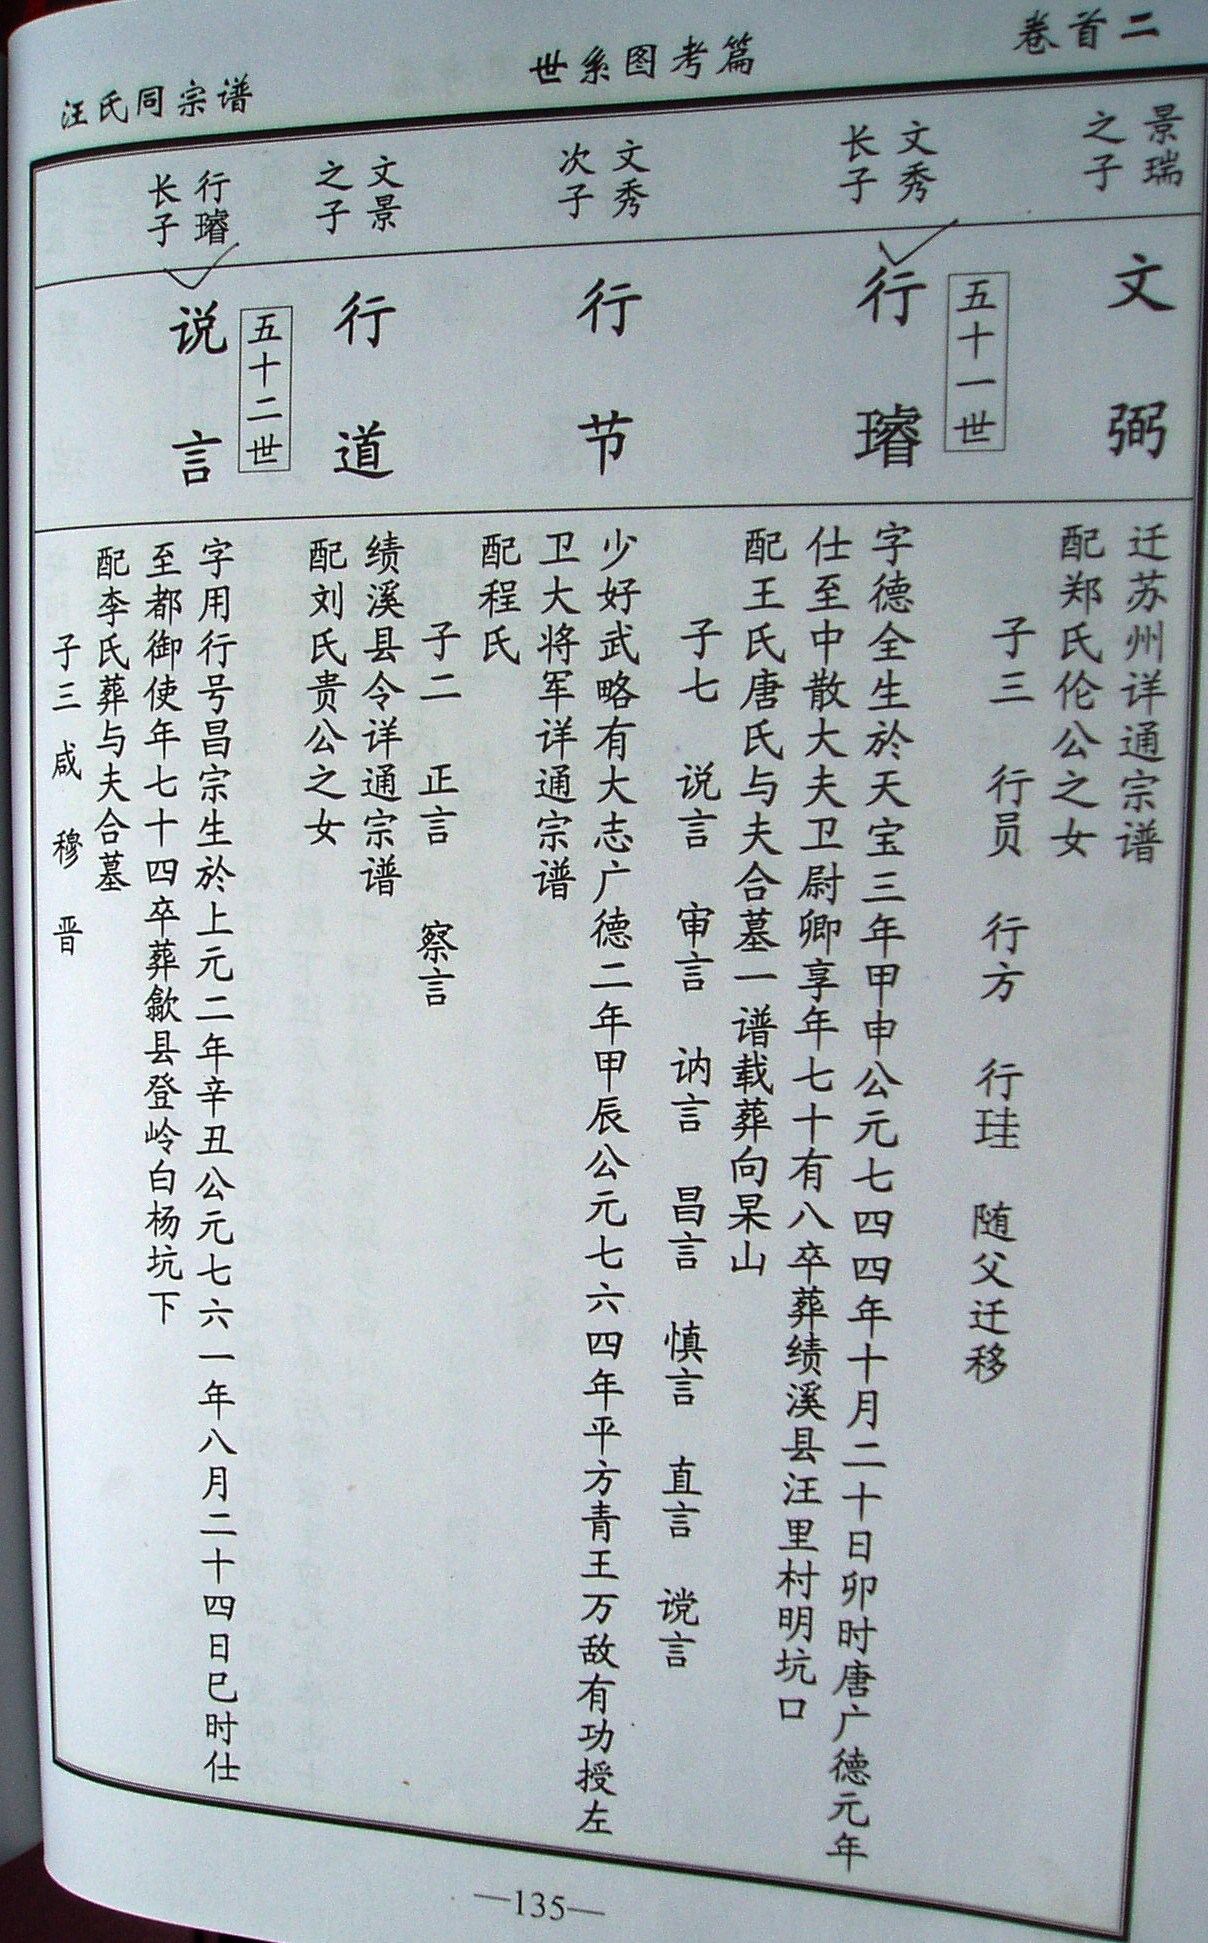 卷首二
世系图考篇
汪氏同宗谱
景瑞
之子
文弼
迁苏州详通宗谱
配郑氏伦公之女
子三 行员 行方 行珪 随父迁移
五十一世
文秀
长子
行璿
字德全生於天宝三年甲申公元七四四年十月二十日卯时唐广德元年
仕至中散大夫卫尉卿享年七十有八卒葬绩溪县汪里村明坑口
配王氏唐氏与夫合墓一谱载葬向杲山
子七 说言 审言 讷言 昌言 慎言 直言 谠言
文秀
次子
行节
少好武略有大志广德二年甲辰公元七六四年平方青王万敌有功授左
卫大将军详通宗谱
配程氏
子二 正言 察言
文景
之子
行道
绩溪县令详通宗谱
配刘氏贵公之女
五十二世
行璿
长子
说言
字用行号昌宗生於上元二年辛丑公元七六一年八月二十四日巳时仕
至都御使年七十四卒葬歙县登岭白杨坑下
配李氏葬与夫合墓
子三 咸 穆 晋
—135—